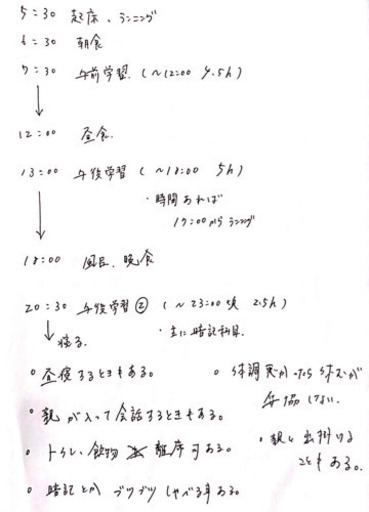 5:30 起床、ランニング
6:30 朝食
7:30 午前学習 (~12:00 4.5h)
12:00 昼食.
13:00 午後学習 (~18:00 5h)
・時間あれば
17:00からランニング
18:00 風呂、晩食
20:30 午後学習② (~23:00頃 2.5h)
寝る.
・主に暗記科目.
○昼寝するときもある。
○体調悪かったら休むが
妥協しない.
○親が入って会話するときもある。
○トイレ、飲物 離席可ある。
・親と出掛ける
こともある。
○暗記とか ブツブツしゃべる事ある。